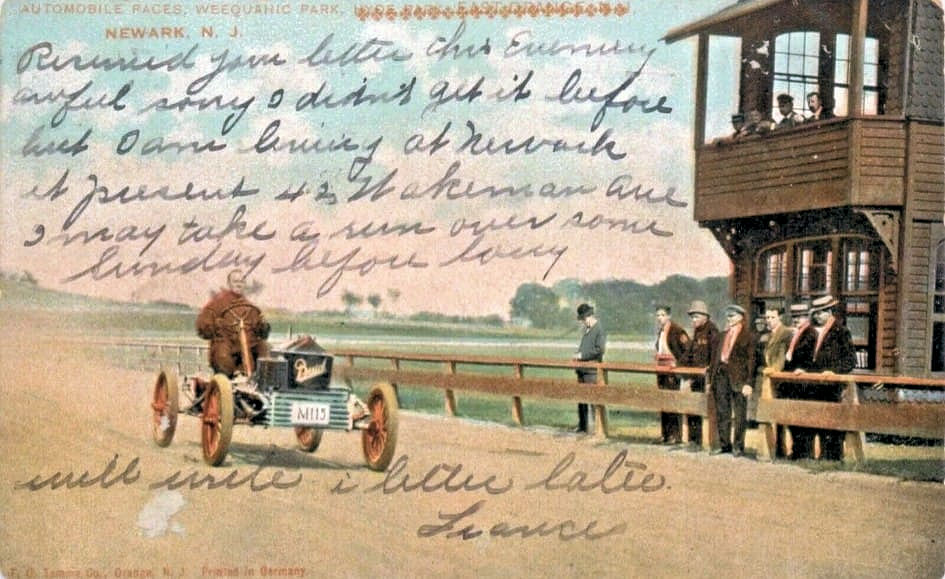 AUTOMOBILE RACES, WEEQUAHIC PARK,
NEWARK, N. J.
Received your letter this Evening
awful sorry I didn't get it before
but I am living at Newark
at present 42 Wakeman ave
I may take a run over some
Sunday before long
M113
will write a letter later.
Frances
Co., Orange, N. J. Printed in Germany.